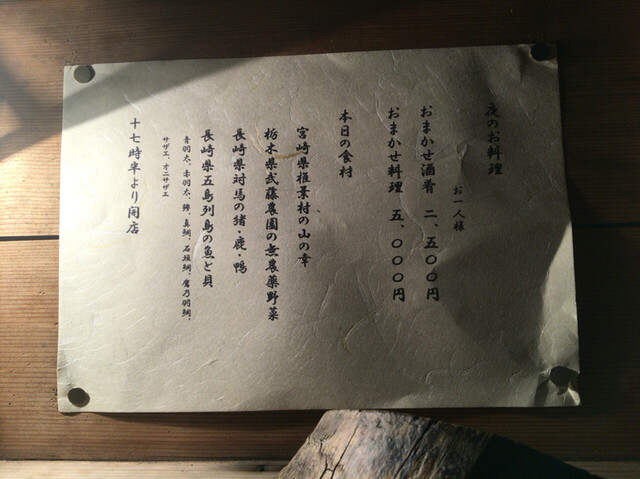 夜のお料理
お一人様
おまかせ酒肴 二、五〇〇円
おまかせ料理 五、〇〇〇円
本日の食材
宮崎県椎葉村の山の幸
栃木県武藤農園の無農薬野菜
長崎県対馬の猪・鹿・鴨
長崎県五島列島の魚と貝
青羽太、赤羽太、鰆、真鯛、石垣鯛、鷹乃羽鯛、
サザエ、オニサザエ
十七時半より開店